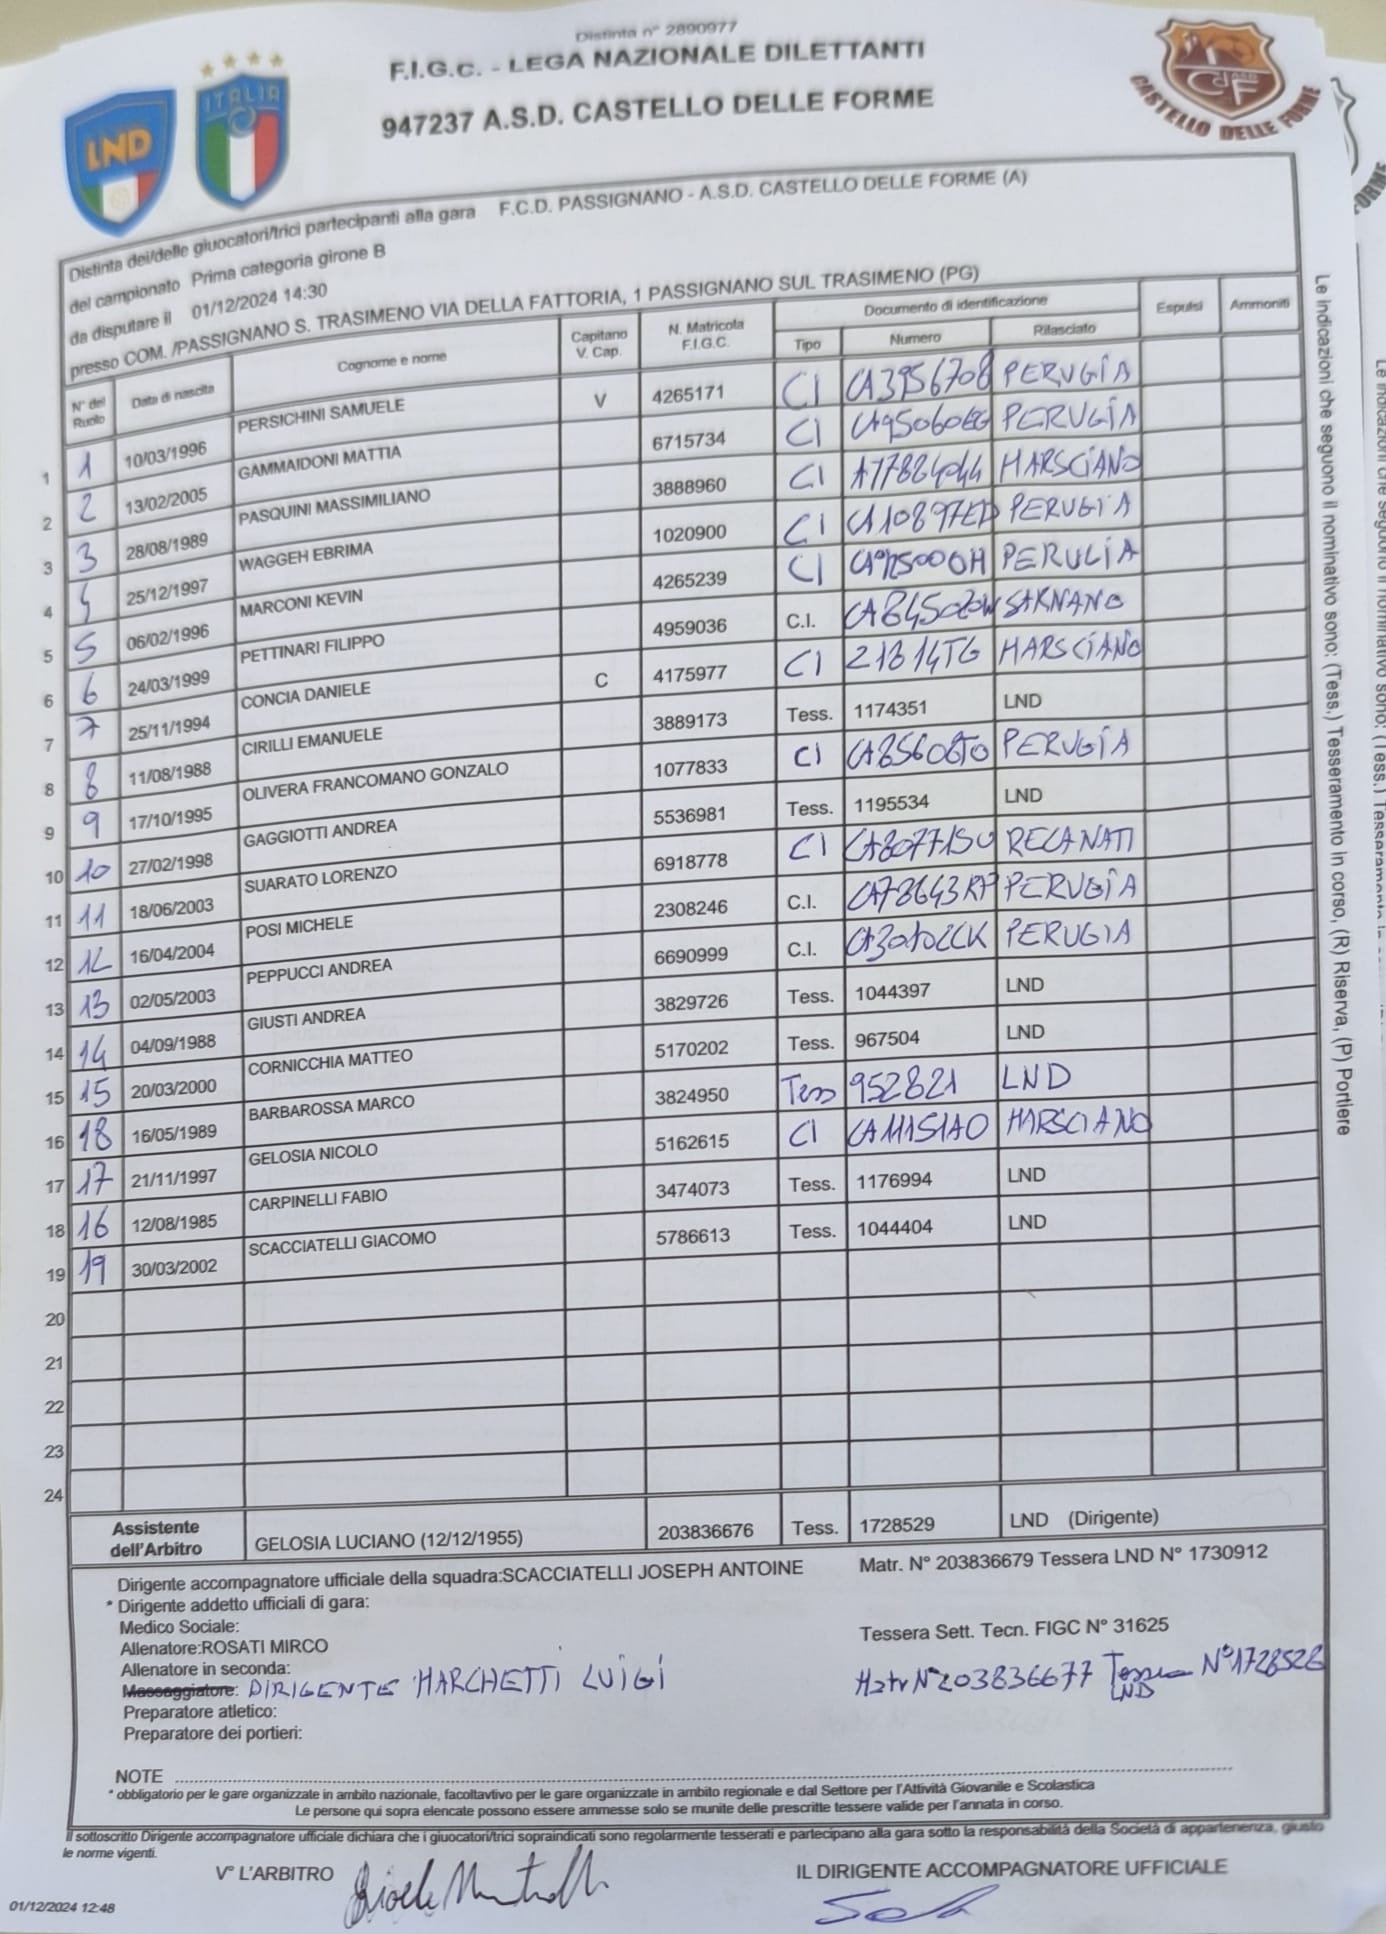 Distinta n° 2890977
F.I.G.c. - LEGA NAZIONALE DILETTANTI
947237 A.S.D. CASTELLO DELLE FORME
LND
ITALIA
CASTELLO DELLE FORME
Distinta dei/delle giuocatori/trici partecipanti alla gara F.C.D. PASSIGNANO - A.S.D. CASTELLO DELLE FORME (A)
del campionato Prima categoria girone B
da disputare il 01/12/2024 14:30
presso COM. /PASSIGNANO S. TRASIMENO VIA DELLA FATTORIA, 1 PASSIGNANO SUL TRASIMENO (PG)
N° del Ruolo Data di nascita Cognome e nome Capitano V. Cap. N. Matricola F.I.G.C. Documento di identificazione Espulsi Ammoniti
Tipo Numero Rilasciato
1 1 10/03/1996 PERSICHINI SAMUELE V 4265171 CI CA3956708 PERUGIA
2 2 13/02/2005 GAMMAIDONI MATTIA 6715734 CI PERUGIA
3 3 28/08/1989 PASQUINI MASSIMILIANO 3888960 CI MARSCIANO
4 4 25/12/1997 WAGGEH EBRIMA 1020900 CI PERUGIA
5 5 06/02/1996 MARCONI KEVIN 4265239 CI PERUGIA
6 6 24/03/1999 PETTINARI FILIPPO 4959036 C.I. SARNANO
7 7 25/11/1994 CONCIA DANIELE C 4175977 CI MARSCIANO
8 8 11/08/1988 CIRILLI EMANUELE 3889173 Tess. 1174351 LND
9 9 17/10/1995 OLIVERA FRANCOMANO GONZALO 1077833 CI PERUGIA
10 10 27/02/1998 GAGGIOTTI ANDREA 5536981 Tess. 1195534 LND
11 11 18/06/2003 SUARATO LORENZO 6918778 CI RECANATI
12 12 16/04/2004 POSI MICHELE 2308246 C.I. PERUGIA
13 13 02/05/2003 PEPPUCCI ANDREA 6690999 C.I. PERUGIA
14 14 04/09/1988 GIUSTI ANDREA 3829726 Tess. 1044397 LND
15 15 20/03/2000 CORNICCHIA MATTEO 5170202 Tess. 967504 LND
16 18 16/05/1989 BARBAROSSA MARCO 3824950 Tess 952821 LND
17 17 21/11/1997 GELOSIA NICOLO 5162615 CI MARSCIANO
18 16 12/08/1985 CARPINELLI FABIO 3474073 Tess. 1176994 LND
19 19 30/03/2002 SCACCIATELLI GIACOMO 5786613 Tess. 1044404 LND
20
21
22
23
24
Assistente dell'Arbitro GELOSIA LUCIANO (12/12/1955) 203836676 Tess. 1728529 LND (Dirigente)
Dirigente accompagnatore ufficiale della squadra:SCACCIATELLI JOSEPH ANTOINE Matr. N° 203836679 Tessera LND N° 1730912
* Dirigente addetto ufficiali di gara:
Medico Sociale:
Allenatore:ROSATI MIRCO Tessera Sett. Tecn. FIGC N° 31625
Allenatore in seconda:
Massaggiatore: DIRIGENTE MARCHETTI LUIGI Matr N° 203836677 Tessera LND N° 1728528
Preparatore atletico:
Preparatore dei portieri:
NOTE
* obbligatorio per le gare organizzate in ambito nazionale, facoltavtivo per le gare organizzate in ambito regionale e dal Settore per l'Attività Giovanile e Scolastica
Le persone qui sopra elencate possono essere ammesse solo se munite delle prescritte tessere valide per l'annata in corso.
Il sottoscritto Dirigente accompagnatore ufficiale dichiara che i giuocatori/trici sopraindicati sono regolarmente tesserati e partecipano alla gara sotto la responsabilità della Società di appartenenza, giusto
le norme vigenti.
V° L'ARBITRO IL DIRIGENTE ACCOMPAGNATORE UFFICIALE
01/12/2024 12:48
Le indicazioni che seguono il nominativo sono: (Tess.) Tesseramento in corso, (R) Riserva, (P) Portiere